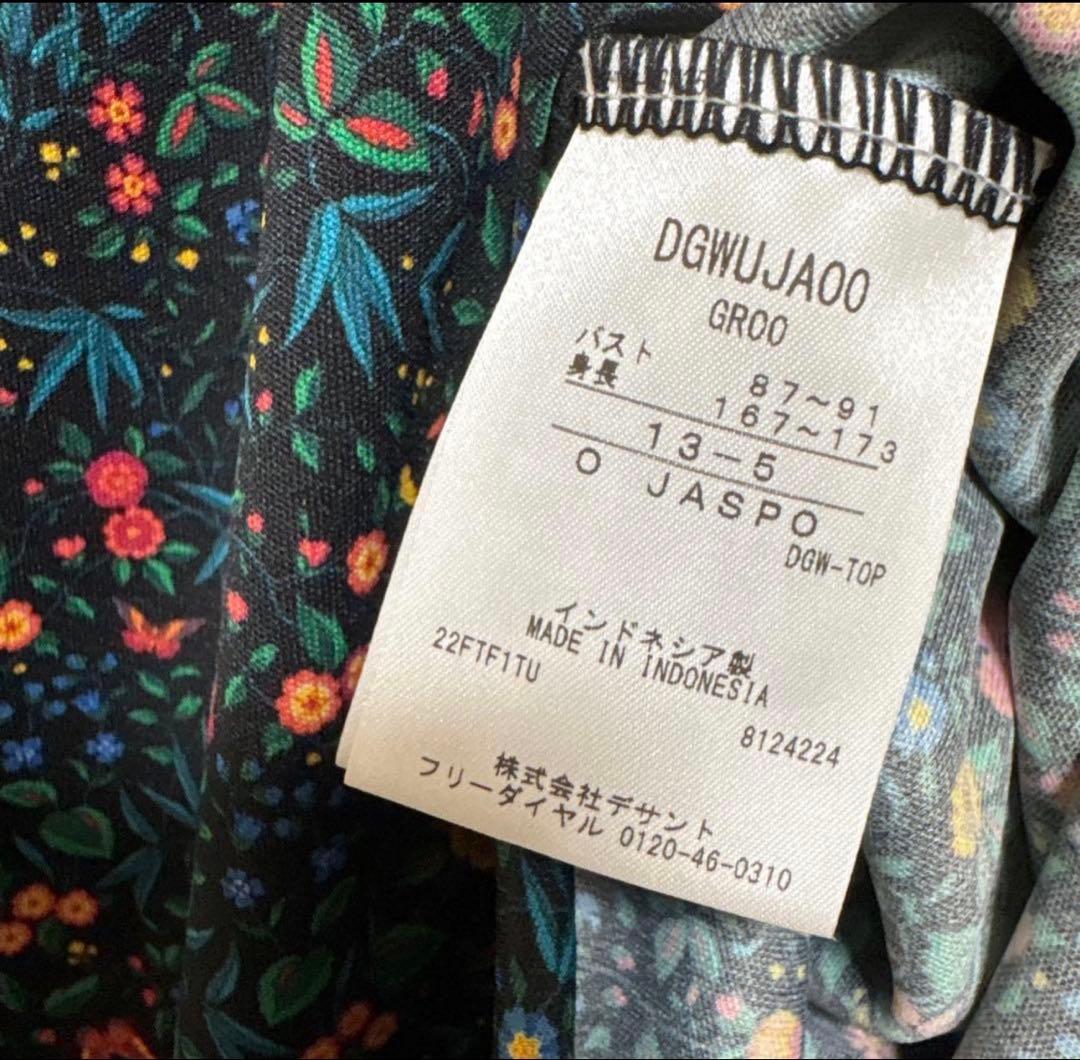 DGWUJA00
GR00
バスト 87～91
身長 167～173
13-5
O JASPO
DGW-TOP
インドネシア製
MADE IN INDONESIA
22FTF1TU
8124224
株式会社デサント
フリーダイヤル 0120-46-0310